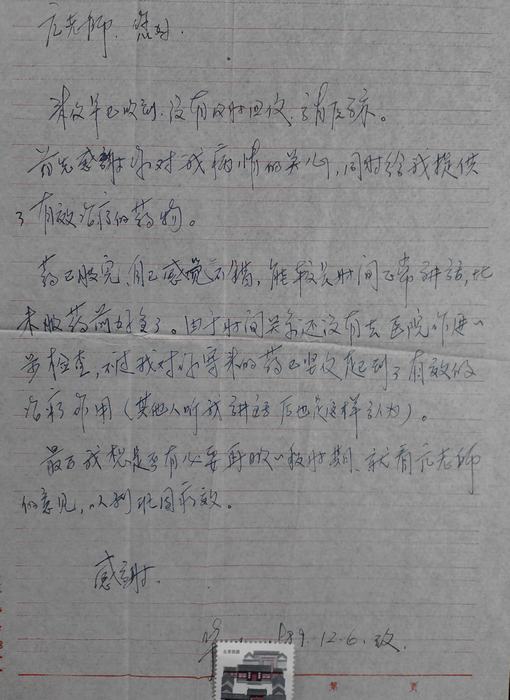 亢老师.您好.
来信早已收到.没有及时回信,请原谅。
首先感谢你对我病情的关心,同时给我提供
了有效治疗的药物。
药已服完,自己感觉不错,能较长时间正常讲话,比
未服药前好多了。由于时间关系还没有去医院作进一
步检查,不过我对你寄来的药已坚信起到了有效的
治疗作用(其他人听我讲话后也是这样认为)。
最后我想是否有必要再服一段时期、就看亢老师
的意见,以利巩固疗效。
感谢.
89.12.6.
第 页